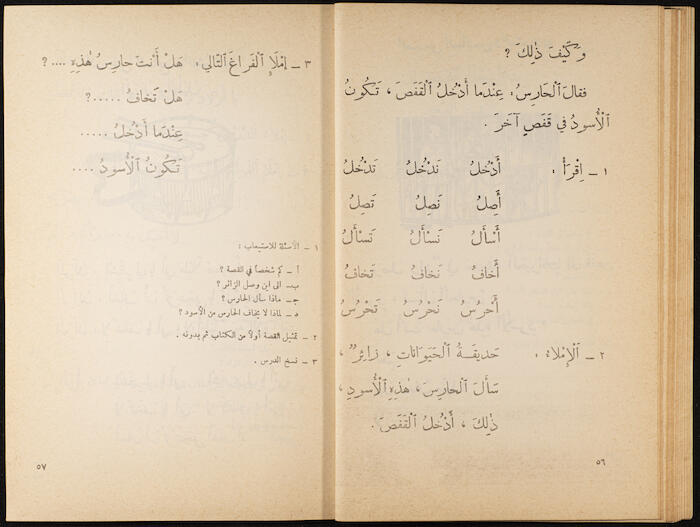 وَكَيْفَ ذٰلِكَ ؟
فقالَ ٱلْحارِسُ : عِنْدَما أَدْخُلُ ٱلْقَفَصَ ، تَكُونُ
ٱلْأُسودُ في قَفَصٍ آخَرَ .
١ - اِقْرَأْ : أَدْخُلُ نَدْخُلُ تَدْخُلُ
أَصِلُ نَصِلُ تَصِلُ
أَسْأَلُ نَسْأَلُ تَسْأَلُ
أَخافُ نَخافُ تَخافُ
أَحْرُسُ نَحْرُسُ تَحْرُسُ
٢ - ٱلْإِمْلاءُ : حَديقَةُ ٱلْحَيَواناتِ ، زائِرٌ ،
سَأَلَ ٱلْحارِسَ ، هٰذِهِ ٱلْأُسودِ ،
ذٰلِكَ ، أَدْخُلُ ٱلْقَفَصَ .
٥٦
٣ - اِمْلَإِ ٱلْفَراغَ ٱلتّالي : هَلْ أَنْتَ حارِسُ هٰذِهِ .... ؟
هَلْ تَخافُ .....؟
عِنْدَما أَدْخُلُ .....
تَكُونُ ٱلْأُسودُ ....
١ - الأسئلة للاستيعاب :
أ - كم شخصاً في القصة ؟
ب - الى اين وصل الزائر ؟
ج - ماذا سأل الحارس ؟
د - لماذا لا يخاف الحارس من الأسود ؟
٢ - تمثيل القصة أولاً من الكتاب ثم بدونه .
٣ - نسخ الدرس .
٥٧